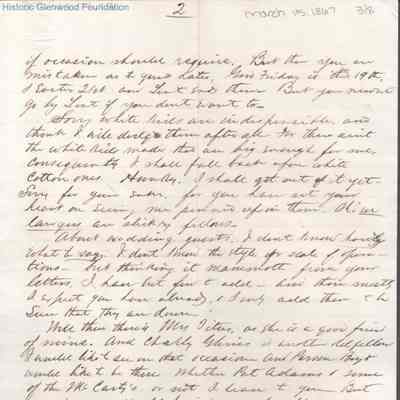 Historic Glenwood Foundation
2
March 15, 1867 3/8
if occasion should require. But then you are
mistaken as to your dates, Good Friday is the 19th,
& Easter 21st and Lent ends then But you need not
go by Lent if you don't want to.
Sorry white kids are indispensible, and
think I will dodge them after all for there aint
the white kids made that are big enough for me,
consequently I shall fall back upon white
cotton ones. Hawkey. I shall get out of it yet.
Sorry for your sake, for you have set your
heart on seeing me
are slickey fellows.
About wedding guests, I don't know hardly
what to say. I don't know the style or scale of opera-
tions - but thinking it mammoth from your
letters, I have but few to add - him their
I expect you have already, & I only add them to be
sure that they are down.
Well then there's Mrs Titus, as she is a good friend
of mine. And Charly
would like to see me on that occasion and Parson Boyd
would like to be there whether Pet Adams & some
of the McCarty's, or not I leave to you But